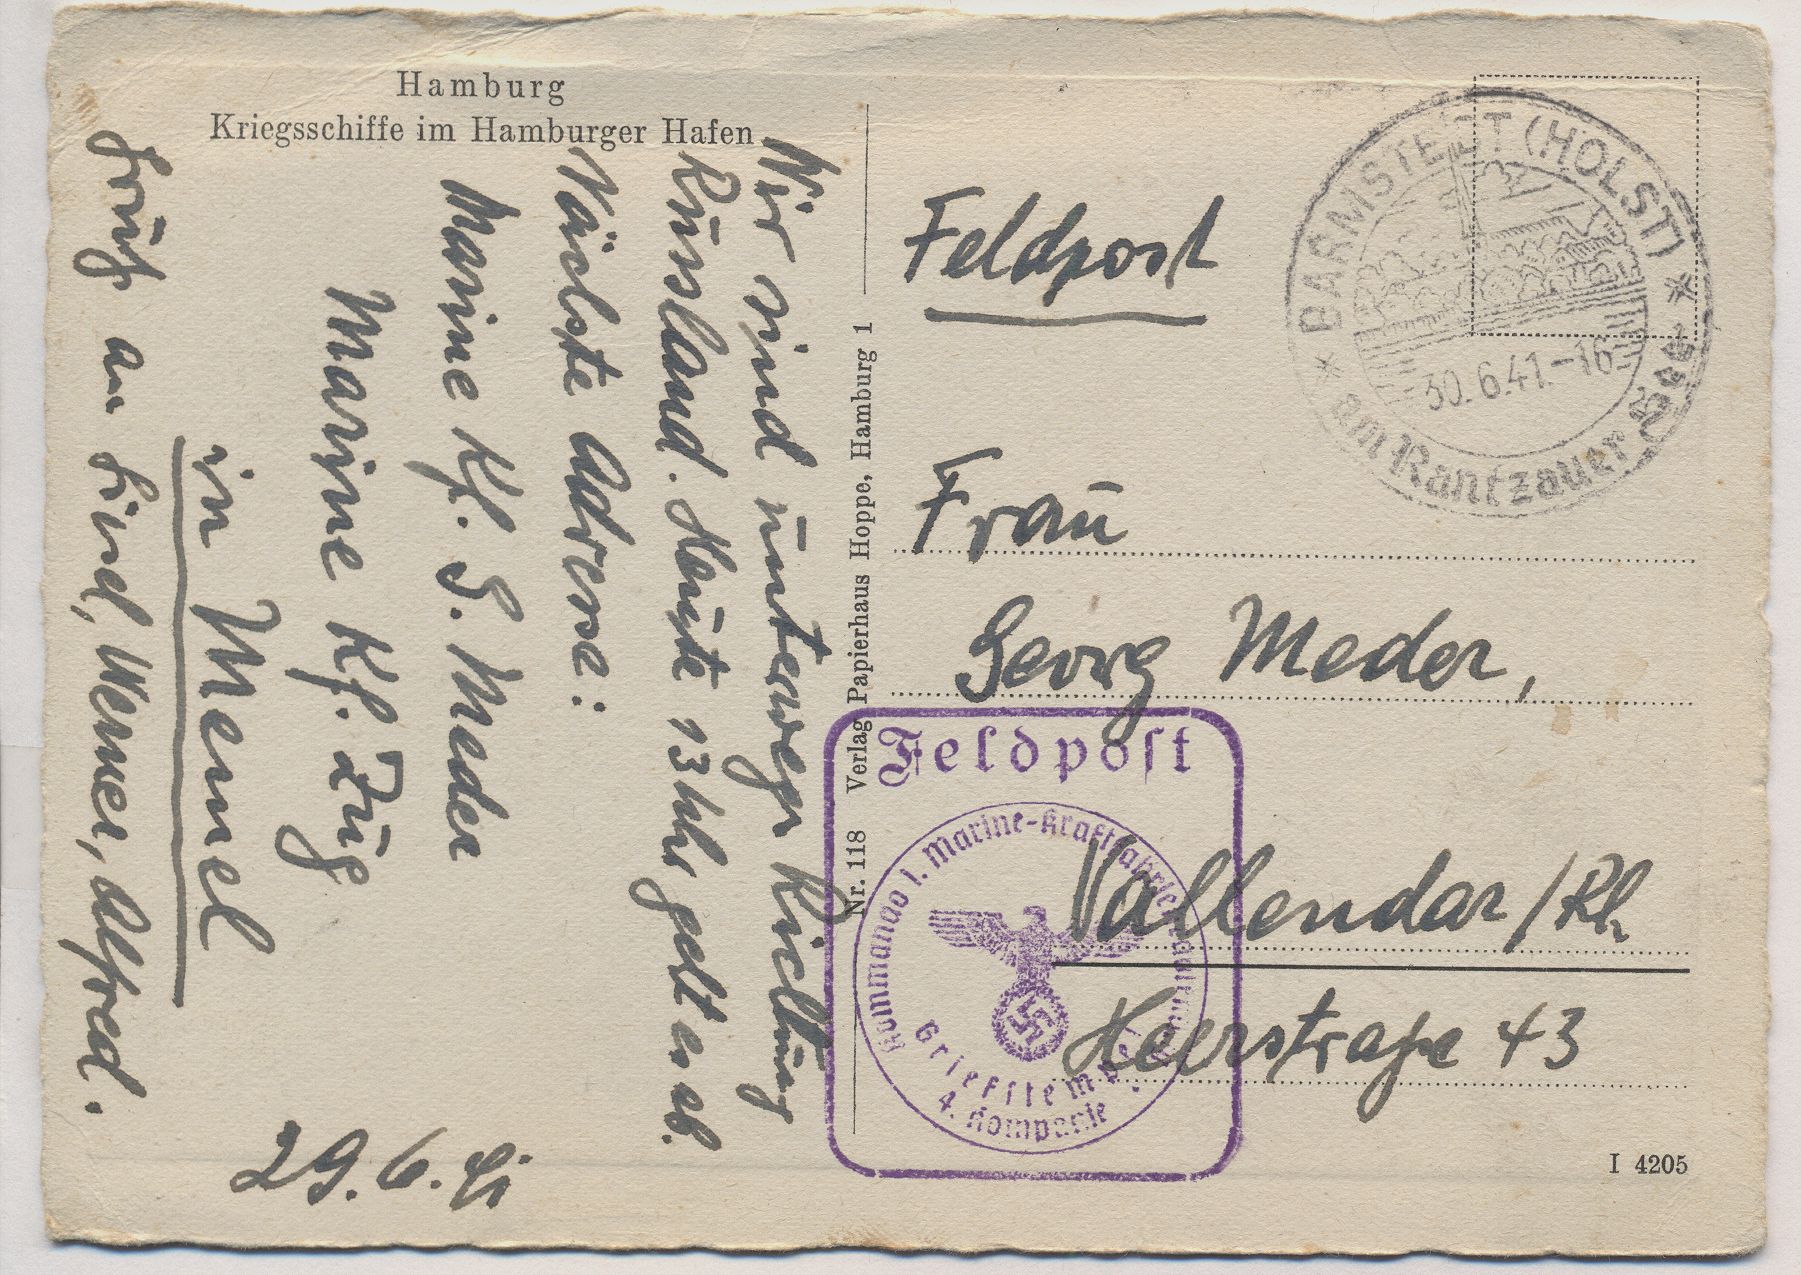 Hamburg
Kriegsschiffe im Hamburger Hafen
Wir sind unterwegs Richtung
Russland. Heute 13 Uhr geht es ab.
Nächste Adresse:
Marine Kf. G. Meder
Marine Kf. Zug
in Memel
Gruß an Lind, Werner, Alfred.
29.6.41
Nr. 118 Verlag Papierhaus Hoppe, Hamburg 1
Feldpost
BARMSTEDT (HOLST)
30.6.41-16
am Rantzauer See
Frau
Georg Meder,
Vallendar/Rh
Heerstraße 43
Feldpost
Kommando 1. Marine-Kraftfahrlerabteilung
Briefstempel
4. Kompanie
I 4205